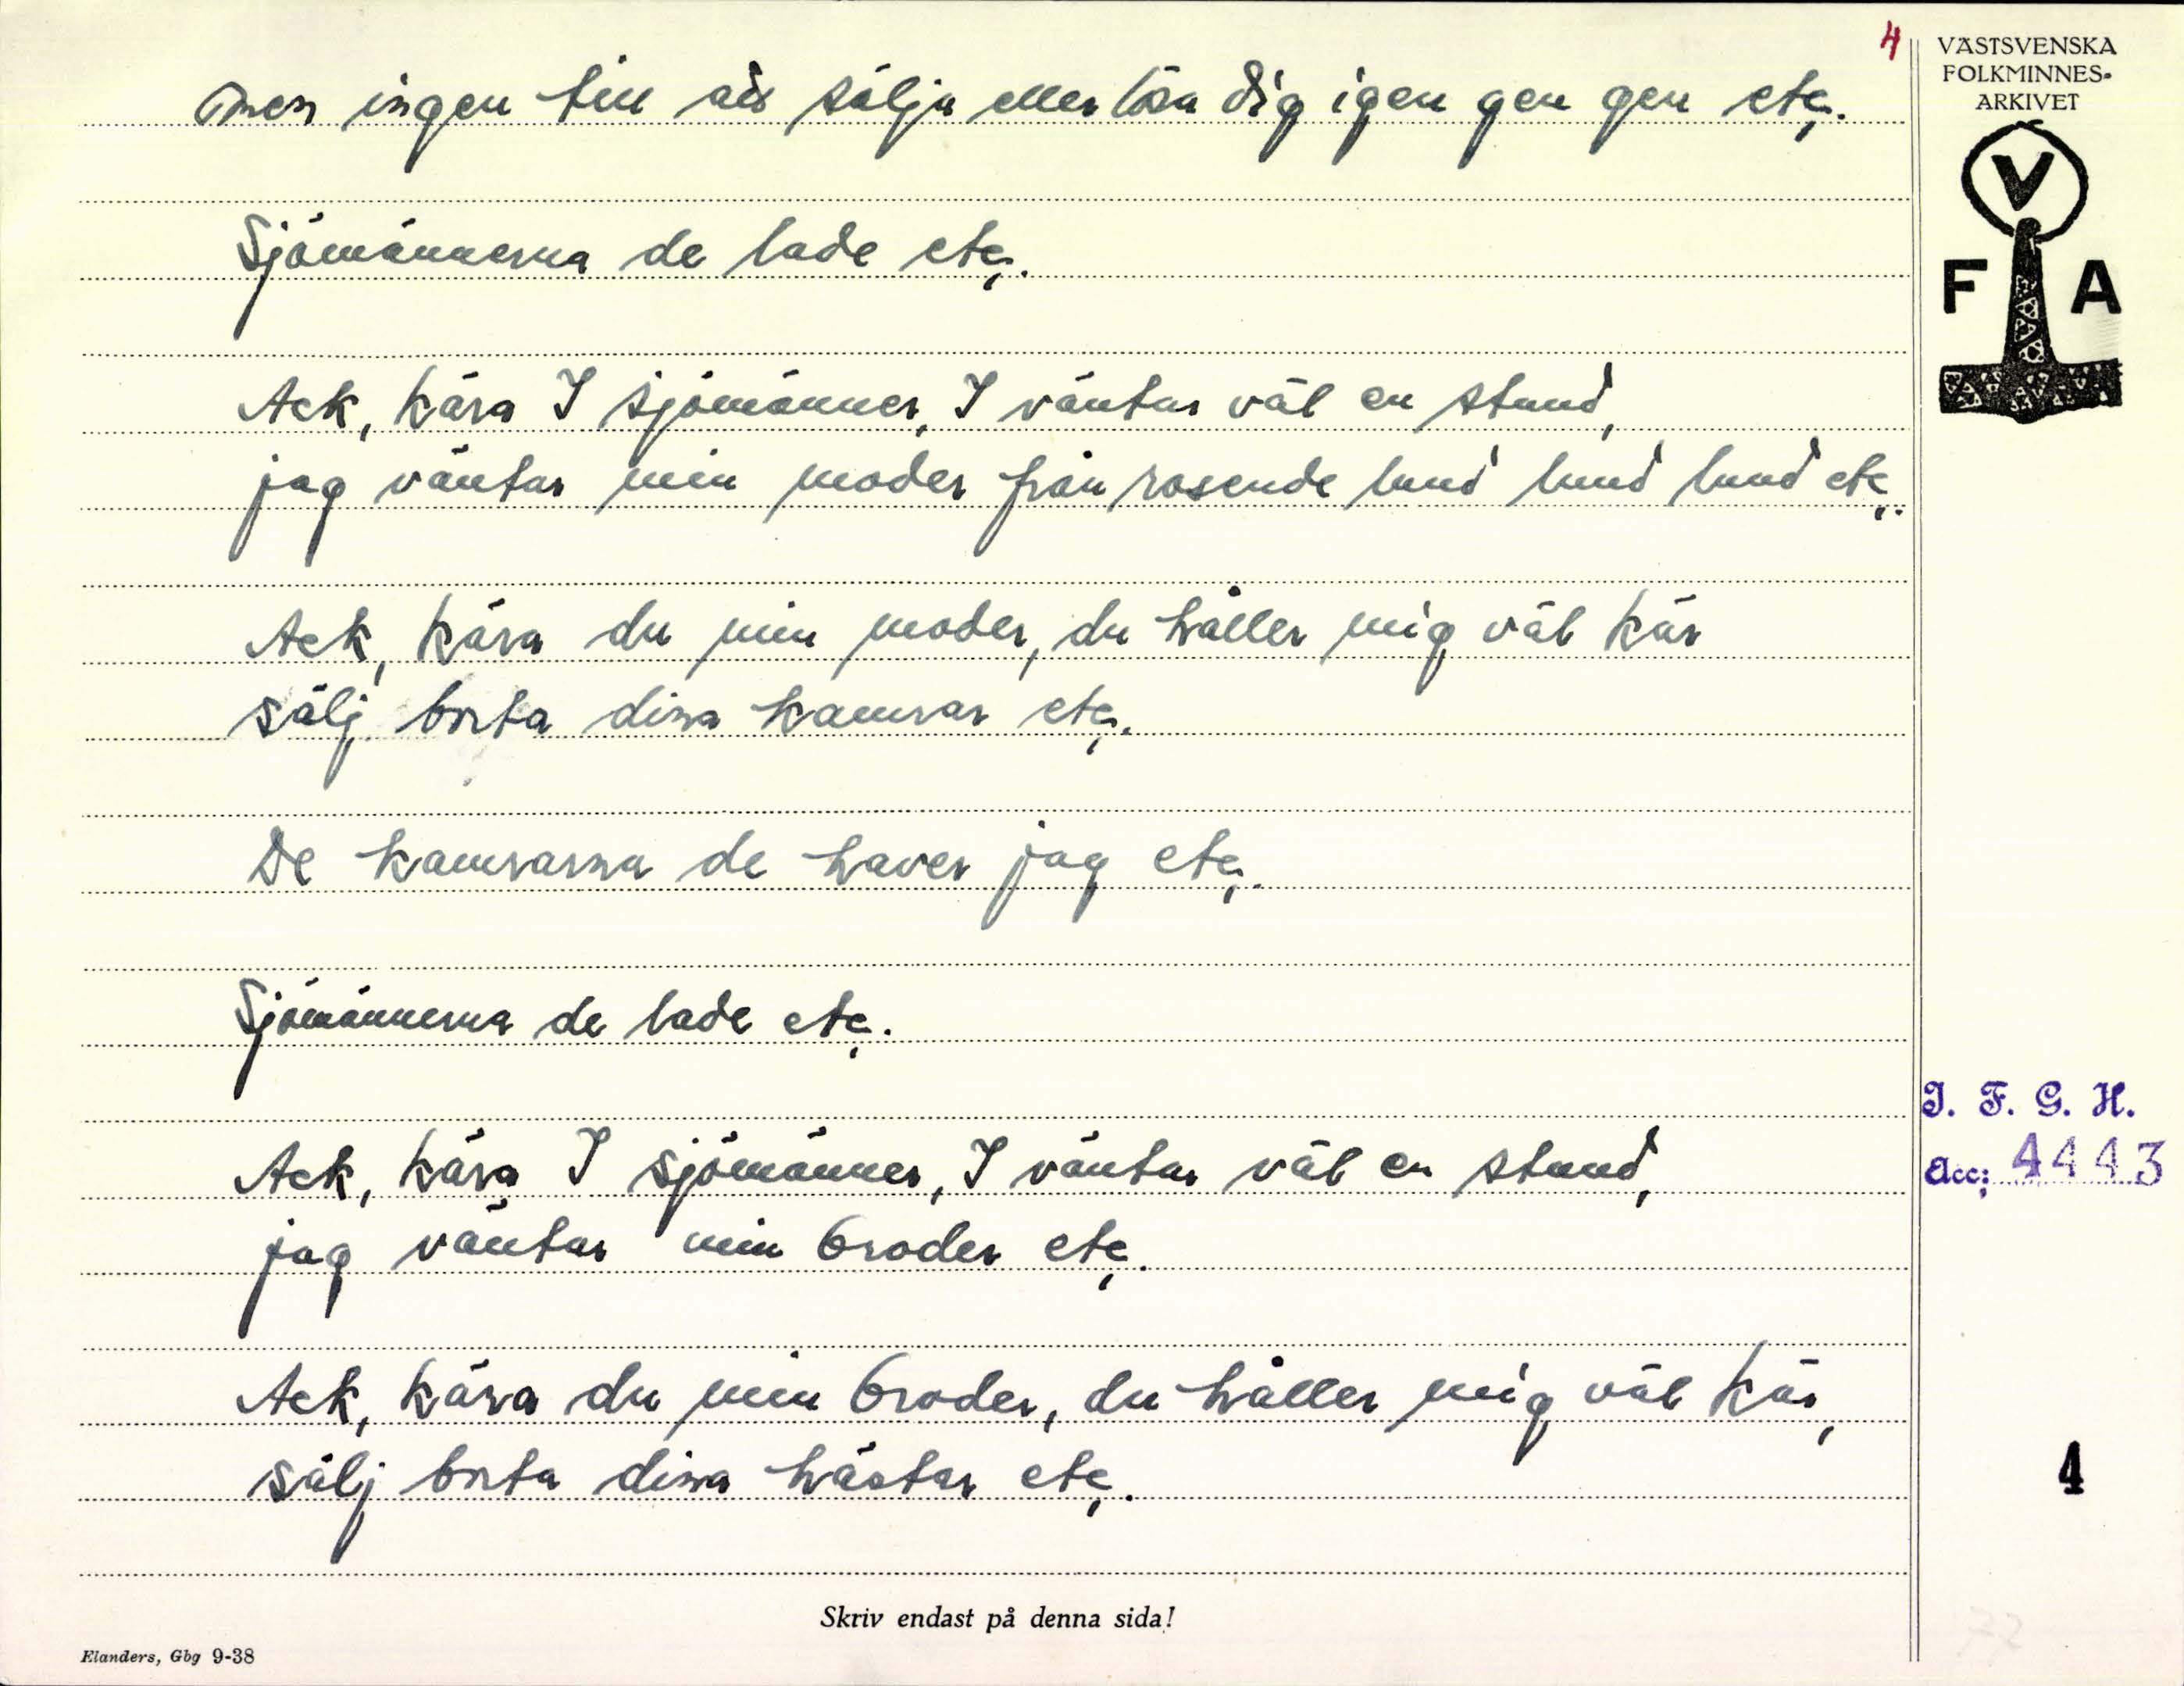 4
men ingen till att sälja eller lösa dig igen gen gen etc.
Sjömännerna de lade etc.
Ack, kära I sjömänner, I väntar väl en stund,
jag väntar min moder från rosende lund lund lund etc.
Ack, kära du min moder, du håller mig väl kär
sälj borta dina kamrar etc.
De kamrarna de haver jag etc.
Sjömännerna de lade etc.
Ack, kära I sjömänner, I väntar väl en stund,
jag väntar min broder etc.
Ack, kära du min broder, du håller mig väl kär,
sälj borta dina hästar etc.
Skriv endast på denna sida!
Elanders, Gbg 9-38
VÄSTSVENSKA
FOLKMINNES-
ARKIVET
V
F A
I. F. G. H.
Acc; 4443
4